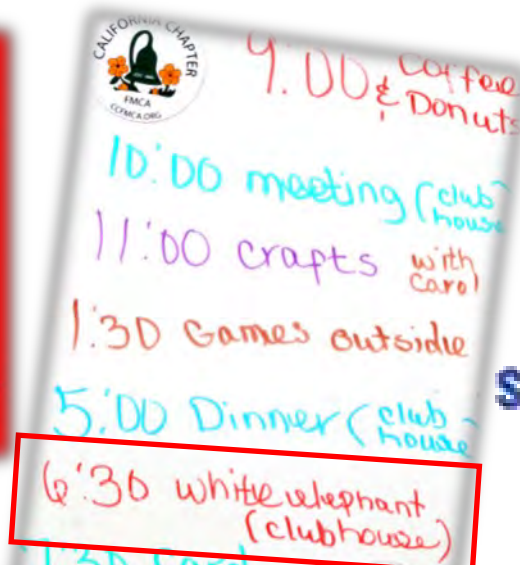 CALIFORNIA CHAPTER
FMCA
CCFMCA.ORG
9:00 Coffee
& Donuts
10:00 meeting (club
house
11:00 crafts with
Carol
1:30 Games outside
5:00 Dinner (club-
house
6:30 white elephant
(clubhouse)
7:30 Card
S